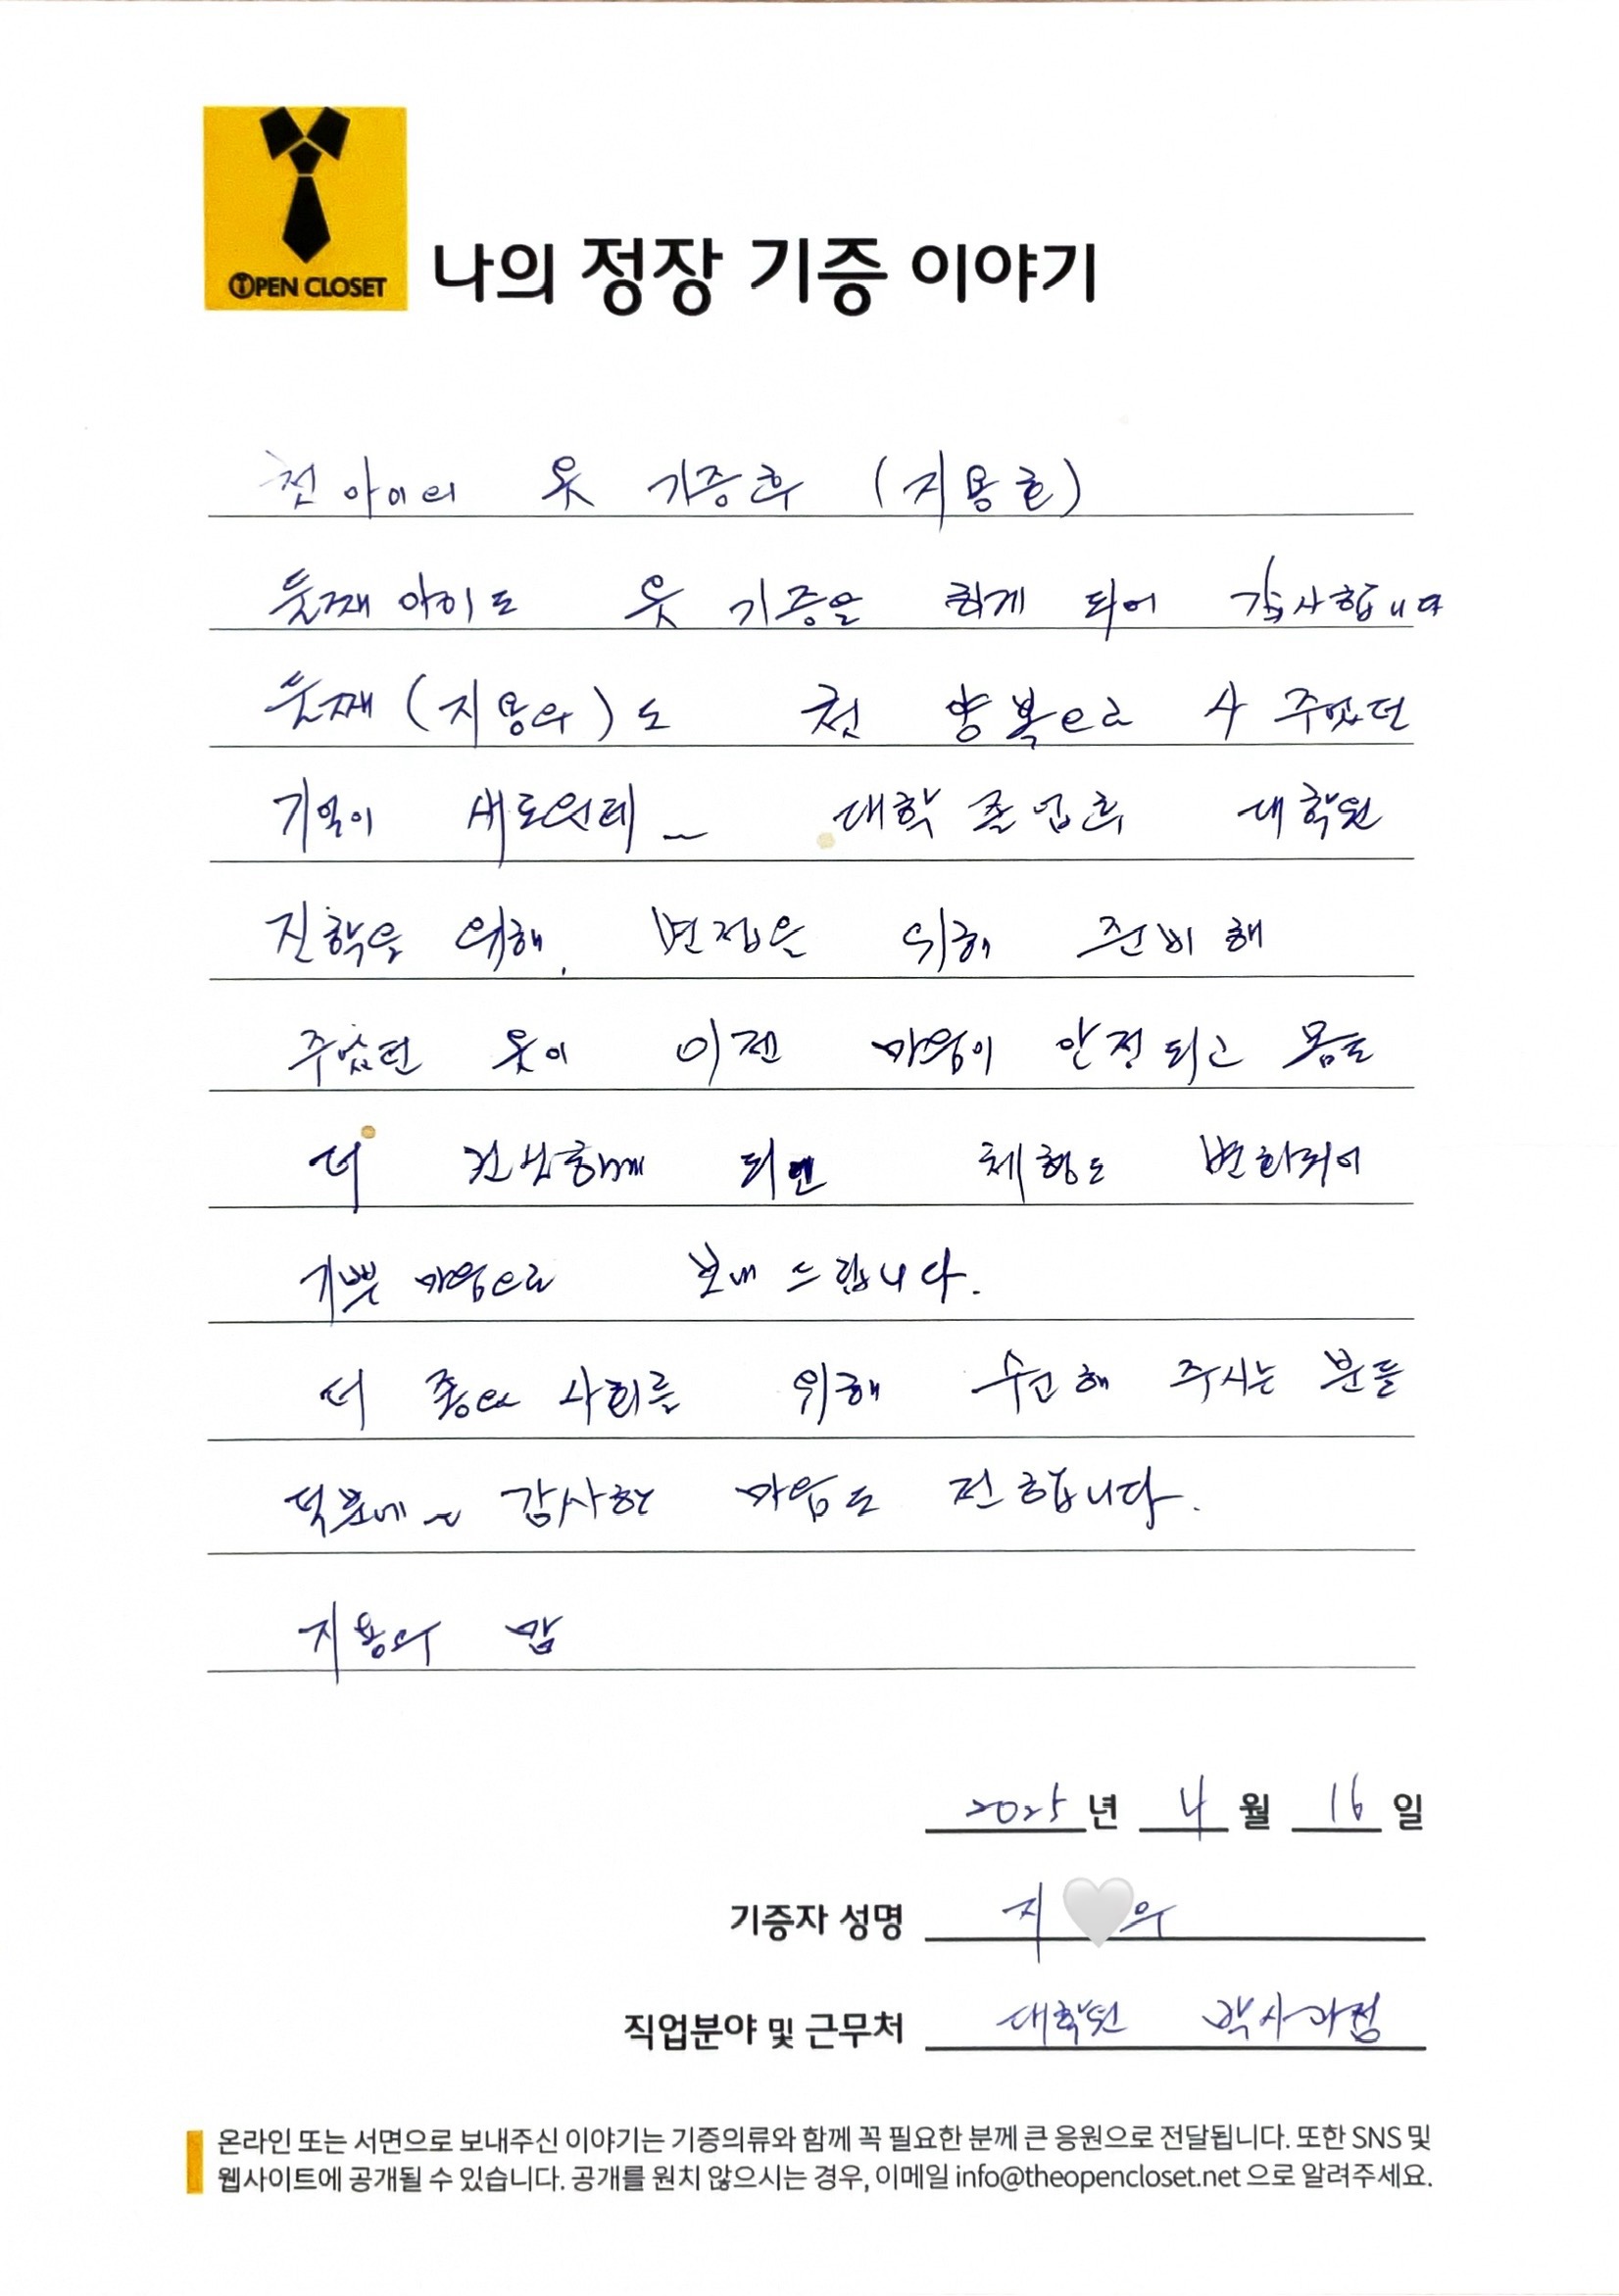 OPEN CLOSET
나의 정장 기증 이야기
첫 아이의 옷 기증후 (지용호)
둘째 아이도 옷 기증을 하게 되어 감사합니다
둘째 (지용우)도 첫 양복으로 사 주었던
기억이 새로운데 ~ 대학 졸업후 대학원
진학을 위해, 면접을 위해 준비해
주었던 옷이 이젠 마음이 안정되고 몸도
더 건강하게 되면 체형도 변화되어
기쁜 마음으로 보내 드립니다.
더 좋은 사회를 위해 수고해 주시는 분들
덕분에 ~ 감사한 마음도 전합니다.
지용우 맘
2025 년 4 월 16 일
기증자 성명 지 우
직업분야 및 근무처 대학원 박사과정
온라인 또는 서면으로 보내주신 이야기는 기증의류와 함께 꼭 필요한 분께 큰 응원으로 전달됩니다. 또한 SNS 및
웹사이트에 공개될 수 있습니다. 공개를 원치 않으시는 경우, 이메일 info@theopencloset.net 으로 알려주세요.